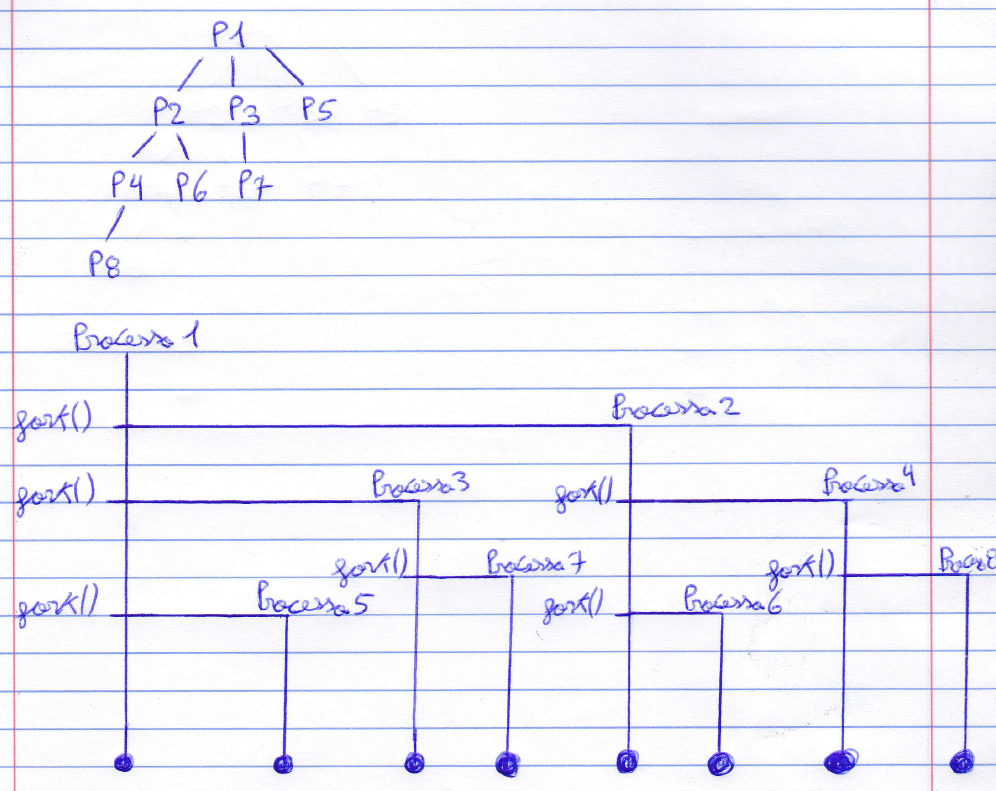 P1
P2 P3 P5
P4 P6 P7
P8
Processo 1
fork() Processo 2
fork() Processo 3 fork() Processo 4
fork() Processo 7 fork() Proces 8
fork() Processo 5 fork() Processo 6